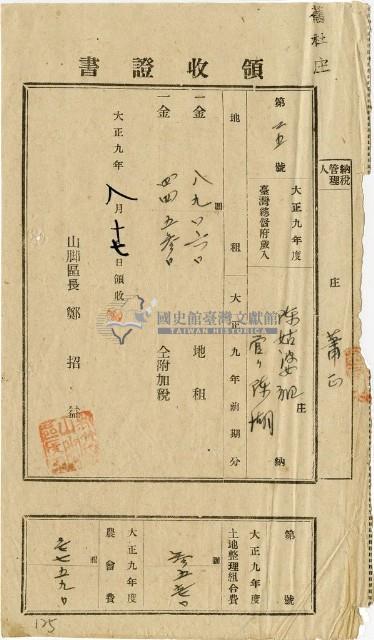 舊社庄
領收證書
納稅管理人
庄
蕭正
第 五 號
大正九年度
臺灣總督府歲入
庄
陳姑婆祖
管 陳湖
納
地租
大正九年前期分
一金 八九〇六〇 圓 地租
一金 四四五 〇 仝附加稅
大正九年八月十七日領收
山腳區長 鄭招
國史館臺灣文獻館
TAIWAN HISTORICA
第 號
大正九年度
土地整理組合費
圓
大正九年度
農會費
七七五九〇
圓
125